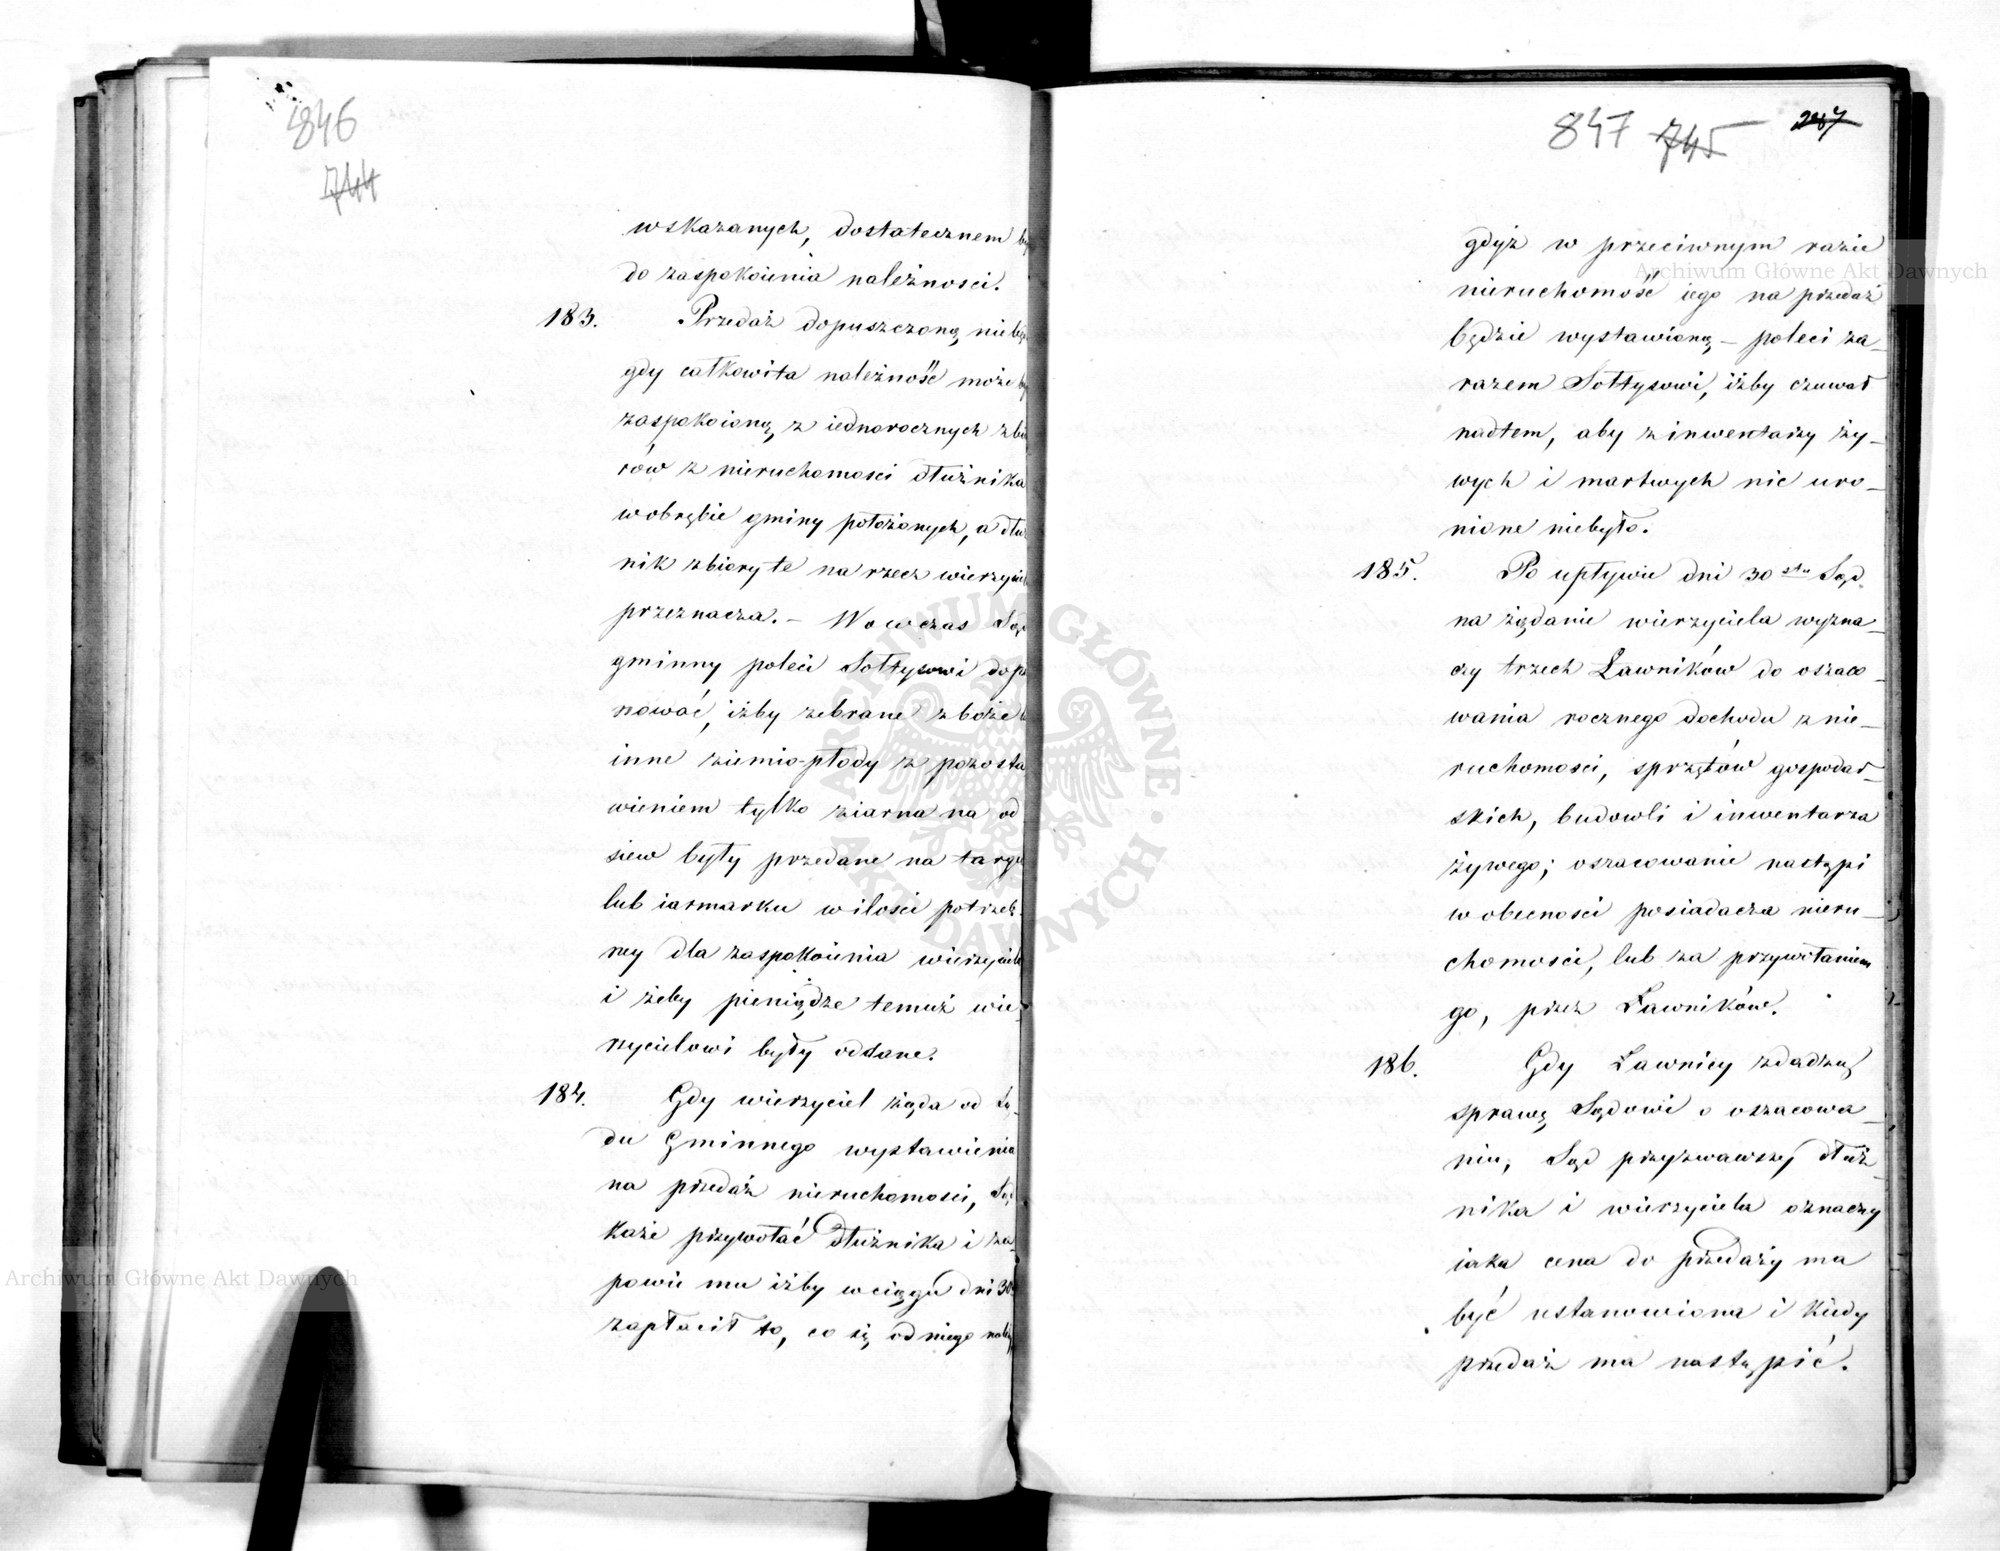 846
744
wskazanych, dostatecznem by
do zaspokoienia należnosci.
183. Przedaż dopuszczoną niebę
gdy całkowita należność może by
zaspokoioną z iednorocznych zbio
rów z nieruchomosci dłużnika
wobrębie gminy położonych, a dłu
nik zbiory te na rzecz wierzyciel
przeznacza. – Wowczas Sąd
gminny poleci Sołtysowi dopil
nować, iżby zebrane zboże
inne ziemio-płody z pozosta
wieniem tylko ziarna na od
siew były przedane na targu
lub iarmarku w ilości potrzeb
ney dla zaspokoienia wierzyciela
i żeby pieniądze temuż wie-
rzycielowi były oddane.
184. Gdy wierzyciel żąda od Są-
du Gminnego wystawienia
na przedaż nieruchomosci, Sąd
każe przywołać dłużnika i za-
powie mu iżby w ciągu dni 30
zapłacił to, co się od niego należy
847 745 247
gdyż w przeciwnym razie
nieruchomość iego na przedaż
będzie wystawioną – poleci za-
razem Sołtysowi, iżby czuwał
nadtem, aby z inwentarzy ży-
wych i martwych nic uro-
nione niebyło.
185. Po upływie dni 30stu Sąd
na żądanie wierzyciela wyzna-
czy trzech Ławników do oszaco-
wania rocznego dochodu z nie-
ruchomosci, sprzętów gospodar-
skich, budowli i inwentarza
żywego; oszacowanie nastąpi
w obecności posiadacza nieru-
chomosci, lub za przywołaniem
go, przez Ławników.
186. Gdy Ławnicy zdadzą
sprawę Sądowi o oszacowa-
niu, Sąd przyzwawszy dłuż-
nika i wierzyciela oznaczy
iaka cena do przedaży ma
być ustanowiona i kiedy
przedaż ma nastąpić.
Archiwum Główne Akt Dawnych
Archiwum Główne Akt Dawnych
ARCHIWUM GŁÓWNE AKT DAWNYCH